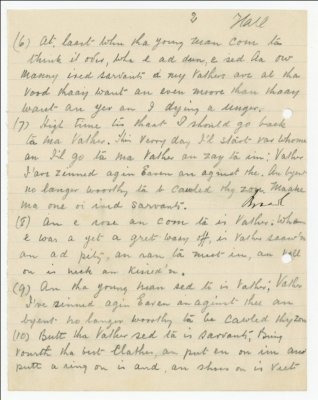 2 Hall
(6) At laast when tha young man com tu
think it over, wha e ad dun, e sed Aa ow
manny ired sarvants o my Vathers ave al tha
vood thaay want an even moore than thaay
want an yer am I dying a unger.
(7) 'Tis High time tu that I should go back
ta ma Vather. This very day I'll start vor whome
an I'll go to ma Vather an zay to im; Vather
I've zinned agin Eaven an aginst the. An byent
no langer worthy to b cawled thy zon. Maake
ma one o' ired sarvants. Break
(8) An e rose an com ta is Vather. Whan
e was a yet a gret waay off, is Vather seaw'n
an ad pity, an ran ta meet im, an vell
on is neck an kissed'n.
(9) An tha young man sed ta is Vather; Vather
I've sinned agin Eaven an aginst thee an
byent no langer worthy to be cawled thy zon
(10) Butt tha Vather sed to is sarvants; Bring
vourth tha best Clathes, an put en on im and
putt a ring on is and, an shoes on is Veet